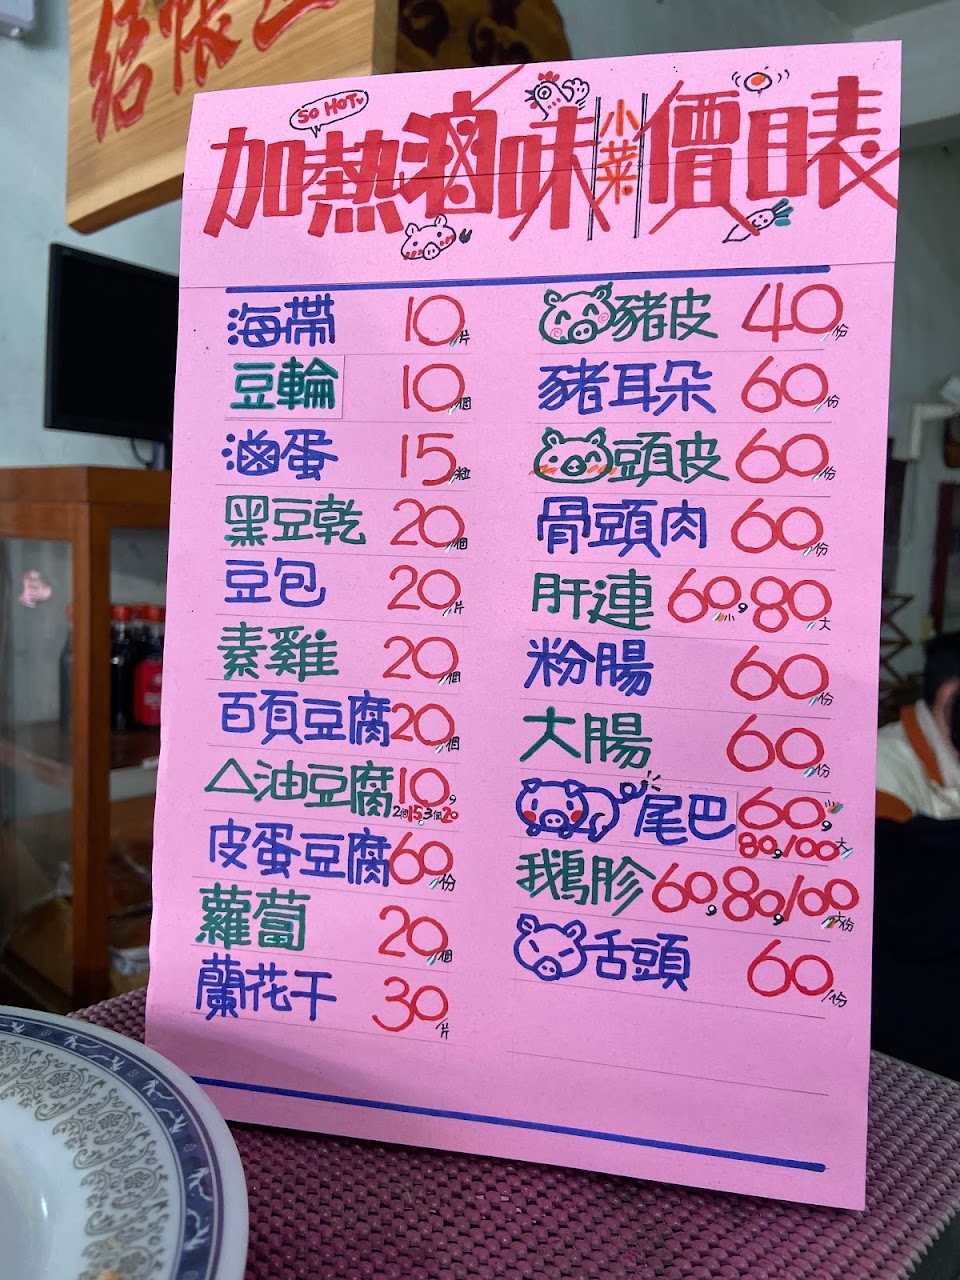 結帳區
SO HOT
加熱滷味小菜價目表
海帶 10/片
豆輪 10/個
滷蛋 15/粒
黑豆乾 20/個
豆包 20/片
素雞 20/個
百頁豆腐 20/個
△油豆腐 10,
2個15,3個20
皮蛋豆腐 60/份
蘿蔔 20/個
蘭花干 30/片
豬皮 40/份
豬耳朵 60/份
頭皮 60/份
骨頭肉 60/份
肝連 60/小,80/大
粉腸 60/份
大腸 60/份
尾巴 60/小,
80,100/大
鵝胗 60,80,100/大份
舌頭 60/份